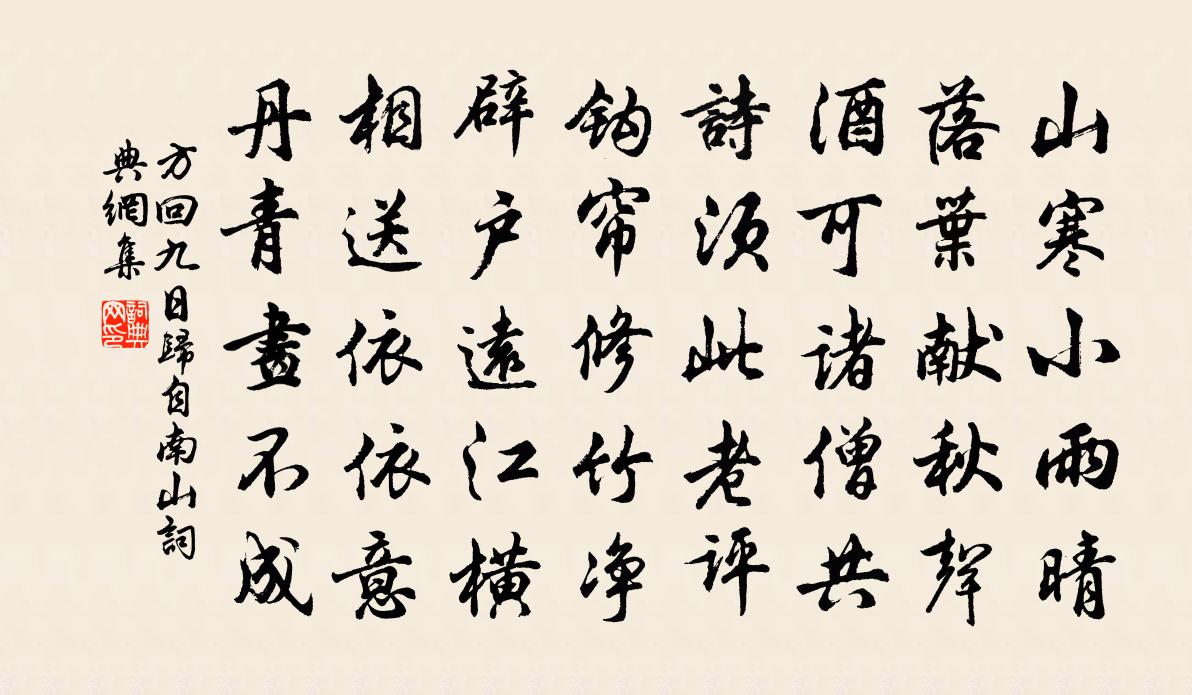 山寒小雨晴
落葉献秋聲
酒可諸僧共
詩須此老評
鈎帘修竹净
辟户遠江横
相送依依意
丹青畫不成
方回九日歸自南山詞
典網集
詞典
网印